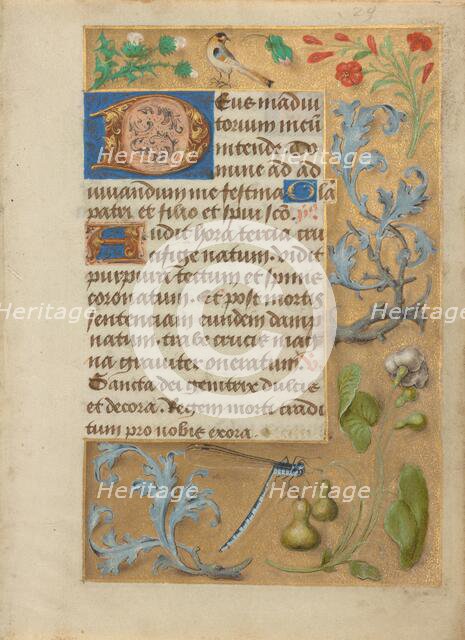 29
Deus in adiu
torium meu
intende. Do
mine ad ad
iuvandum me festina. Gla
patri et filio et spiui sco.
Audit hora tercia cru
cifige natum. vidit
purpura tectum et spinis
coronatum. et post mortis
sentenciam eundem damp
natum. trabe crucis mag
na graviter oneratum.
Sancta dei genitrix dulcis
et decora. Regem morti tradi
tum pro nobis exora.
Heritage Heritage
Heritage Heritage
Heritage Heritage
C